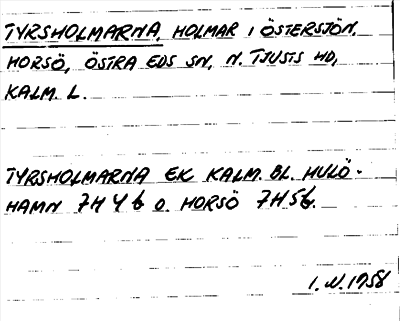 TYRSHOLMARNA, HOLMAR I ÖSTERSJÖN,
HORSÖ, ÖSTRA EDS SN, N. TJUSTS HD,
KALM. L.
TYRSHOLMARNA EK KALM. BL. HULÖ-
HAMN 7H 4b O. HORSÖ 7H5b.
I. W. 1958